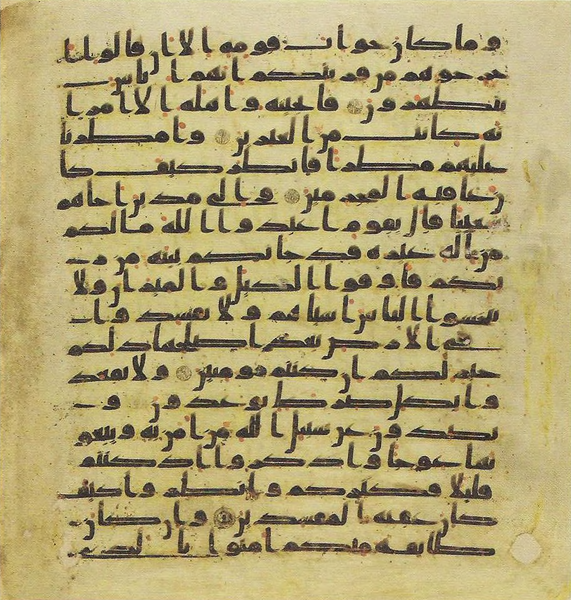 وما كان جواب قومه الا ان قالوا ا
خرجوهم من قريتكم انهم اناس
يتطهرون فانجينه واهله الا امرا
ته كانت من الغبرين وامطرنا
عليهم مطرا فانظر كيف كا
ن عقبة المجرمين والى مدين اخاهم
شعيبا قال يقوم اعبدوا الله ما لكم
من اله غيره قد جاتكم بينة من ر
بكم فاوفوا الكيل والميزان ولا
تبخسوا الناس اشياهم ولا تفسدوا
في الارض بعد اصلحها ذلكم
خير لكم ان كنتم مومنين ولا تقعد
وا بكل صرط توعدون و
تصدون عن سبيل الله من امن به وتبغو
نها عوجا واذكروا اذ كنتم
قليلا فكثركم وانظروا كيف
كان عقبة المفسدين وان كان
طايفة منكم امنوا بالذي